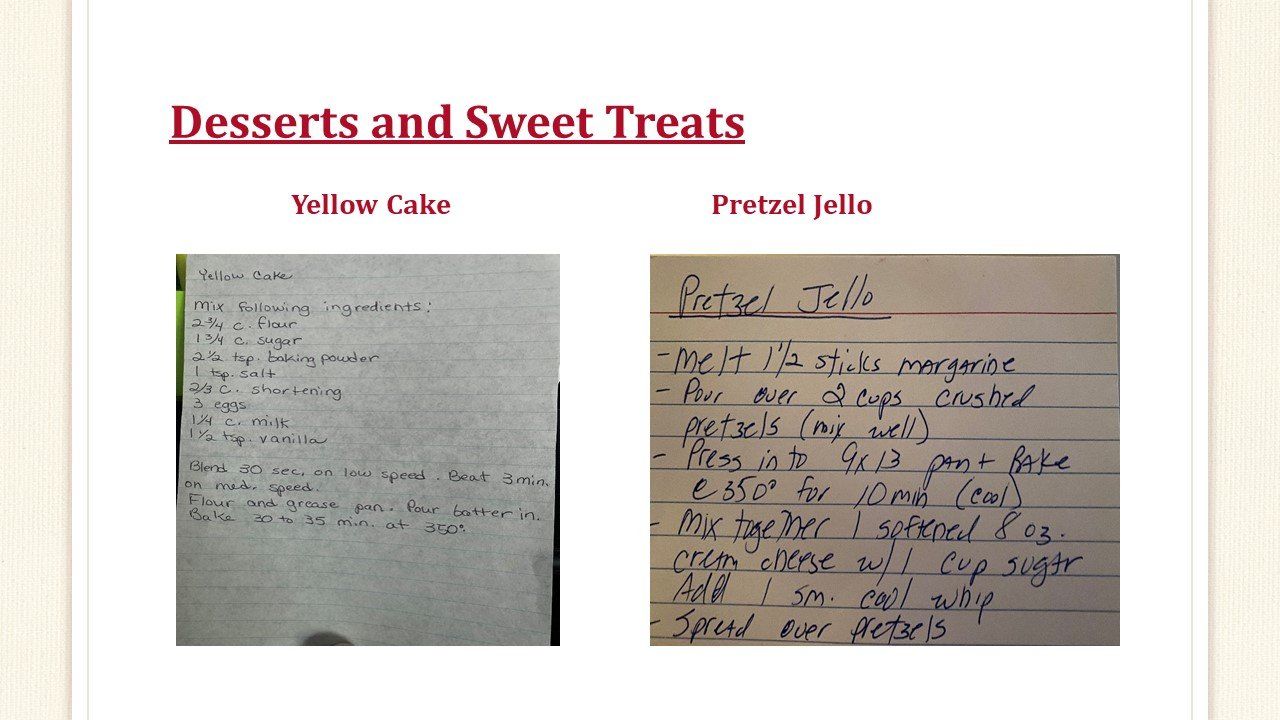 Desserts and Sweet Treats
Yellow Cake
Pretzel Jello
Yellow Cake
Mix following ingredients:
2 3/4 c. flour
1 3/4 c. sugar
2 1/2 tsp. baking powder
1 tsp. salt
2/3 c. shortening
3 eggs
1 1/4 c. milk
1 1/2 tsp. vanilla
Blend 30 sec. on low speed. Beat 3 min.
on med. speed.
Flour and grease pan. Pour batter in.
Bake 30 to 35 min. at 350°.
Pretzel Jello
- Melt 1 1/2 sticks margarine
- Pour over 2 cups crushed
pretzels (mix well)
- Press into 9x13 pan + Bake
@ 350° for 10 min (cool)
- Mix together 1 softened 8 oz.
cream cheese w/ 1 cup sugar
Add 1 sm. cool whip
- Spread over pretzels